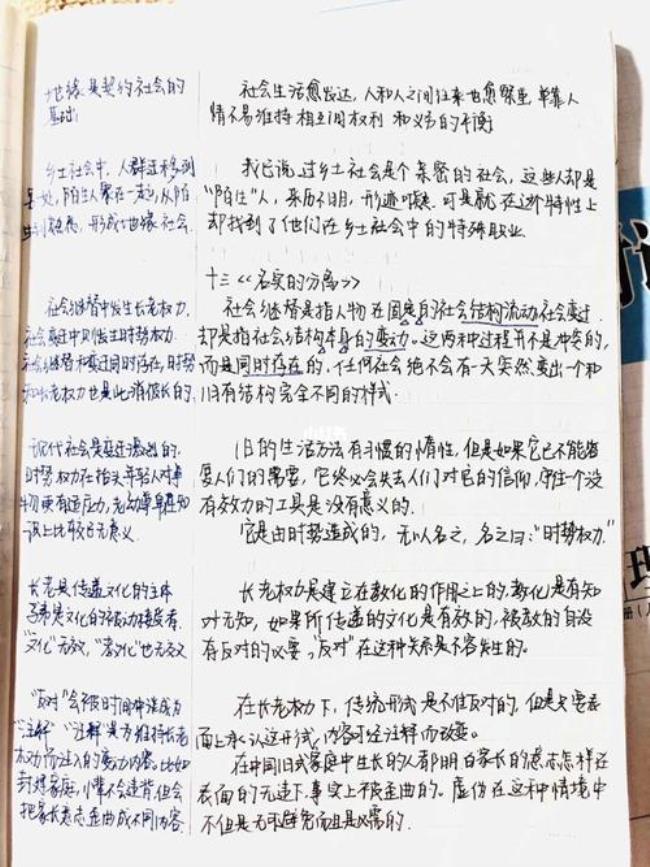 地缘是契约社会的
基础
社会生活愈发达，人和人之间往来也愈繁重，单靠人
情不易维持相互间权利和义务的平衡
乡土社会中，人群迁移到
某一处，陌生人聚在一起，从陌
形成地缘社会
我已说过乡土社会是个亲密的社会，这些人却是
“陌生”人，来历不明，形迹可疑。可是就在这个特性上
却找到了他们在乡土社会中的特殊职业
十三《名实的分离》
社会继替中发生长老权力
社会变迁中则发生时势权力
社会继替和变迁同时存在，时势
和长老权力也是此消彼长的。
社会继替是指人物在固定的社会结构流动社会变迁
却是指社会结构本身的变动。这两种过程并不是冲突的，
而是同时存在的，任何社会绝不会有一天突然变出一个和
旧有结构完全不同的样式.
现代社会是变迁激烈的.
时势权力在抬头年轻人对事
物更有适应力，
识上比较已无意义
旧的生活方法有习惯的惰性，但是如果它已不能答
复人们的需要，它终必会失去人们对它的信仰，守住一个没
有效力的工具是没有意义的.
它是由时势造成的，无以名之，名之曰：“时势权力.”
长老是传递文化的主体
子弟是文化的被动接受者.
“文化”无效，“教化”也无意义
长老权力是建立在教化的作用之上的，教化是有知
对无知，如果所传递的文化是有效的，被教的自没
有反对的必要，“反对”在这种关系是不容发生的。
“反对”会被时间冲淡成为
“注释”“注释”是为维持长老
权力而注入的变动内容。比如
封建家庭，小辈不会违背但会
把家长意志歪曲成不同内容.
在长老权力下，传统形式是不准反对的，但是只要表
面上承认这形式，内容可经注释而改变。
在中国旧式家庭中生长的人都明白家长的意志怎样在
表面的无违下.事实上不被歪曲的。虚伪在这种情境中
不但是无可避免而且是必需的.
小红书